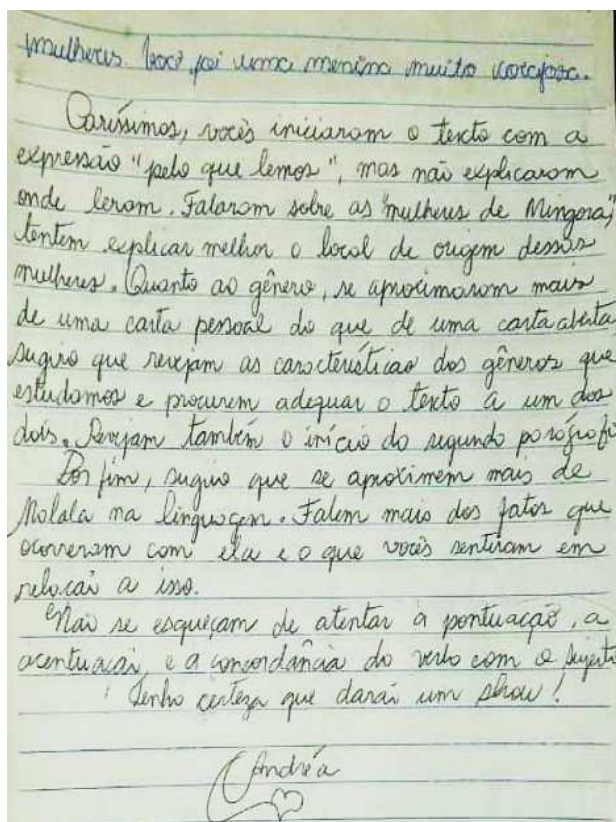 mulheres. Você foi uma menina muito corajosa.
Caríssimos, vocês iniciaram o texto com a
expressão "pelo que lemos", mas não explicaram
onde leram. Falaram sobre as "mulheres de Mingora",
tentem explicar melhor o local de origem dessas
mulheres. Quanto ao gênero, se aproximaram mais
de uma carta pessoal do que de uma carta aberta
sugiro que revejam as características dos gêneros que
estudamos e procurem adequar o texto a um dos
dois. Revejam também o início do segundo parágrafo
Por fim, sugiro que se aproximem mais de
Malala na linguagem. Falem mais dos fatos que
ocorreram com ela e o que vocês sentiram em
relação a isso.
Não se esqueçam de atentar à pontuação, a
acentuação, e a concordância do verbo com o sujeito
! Tenho certeza que darão um show!
Andréa